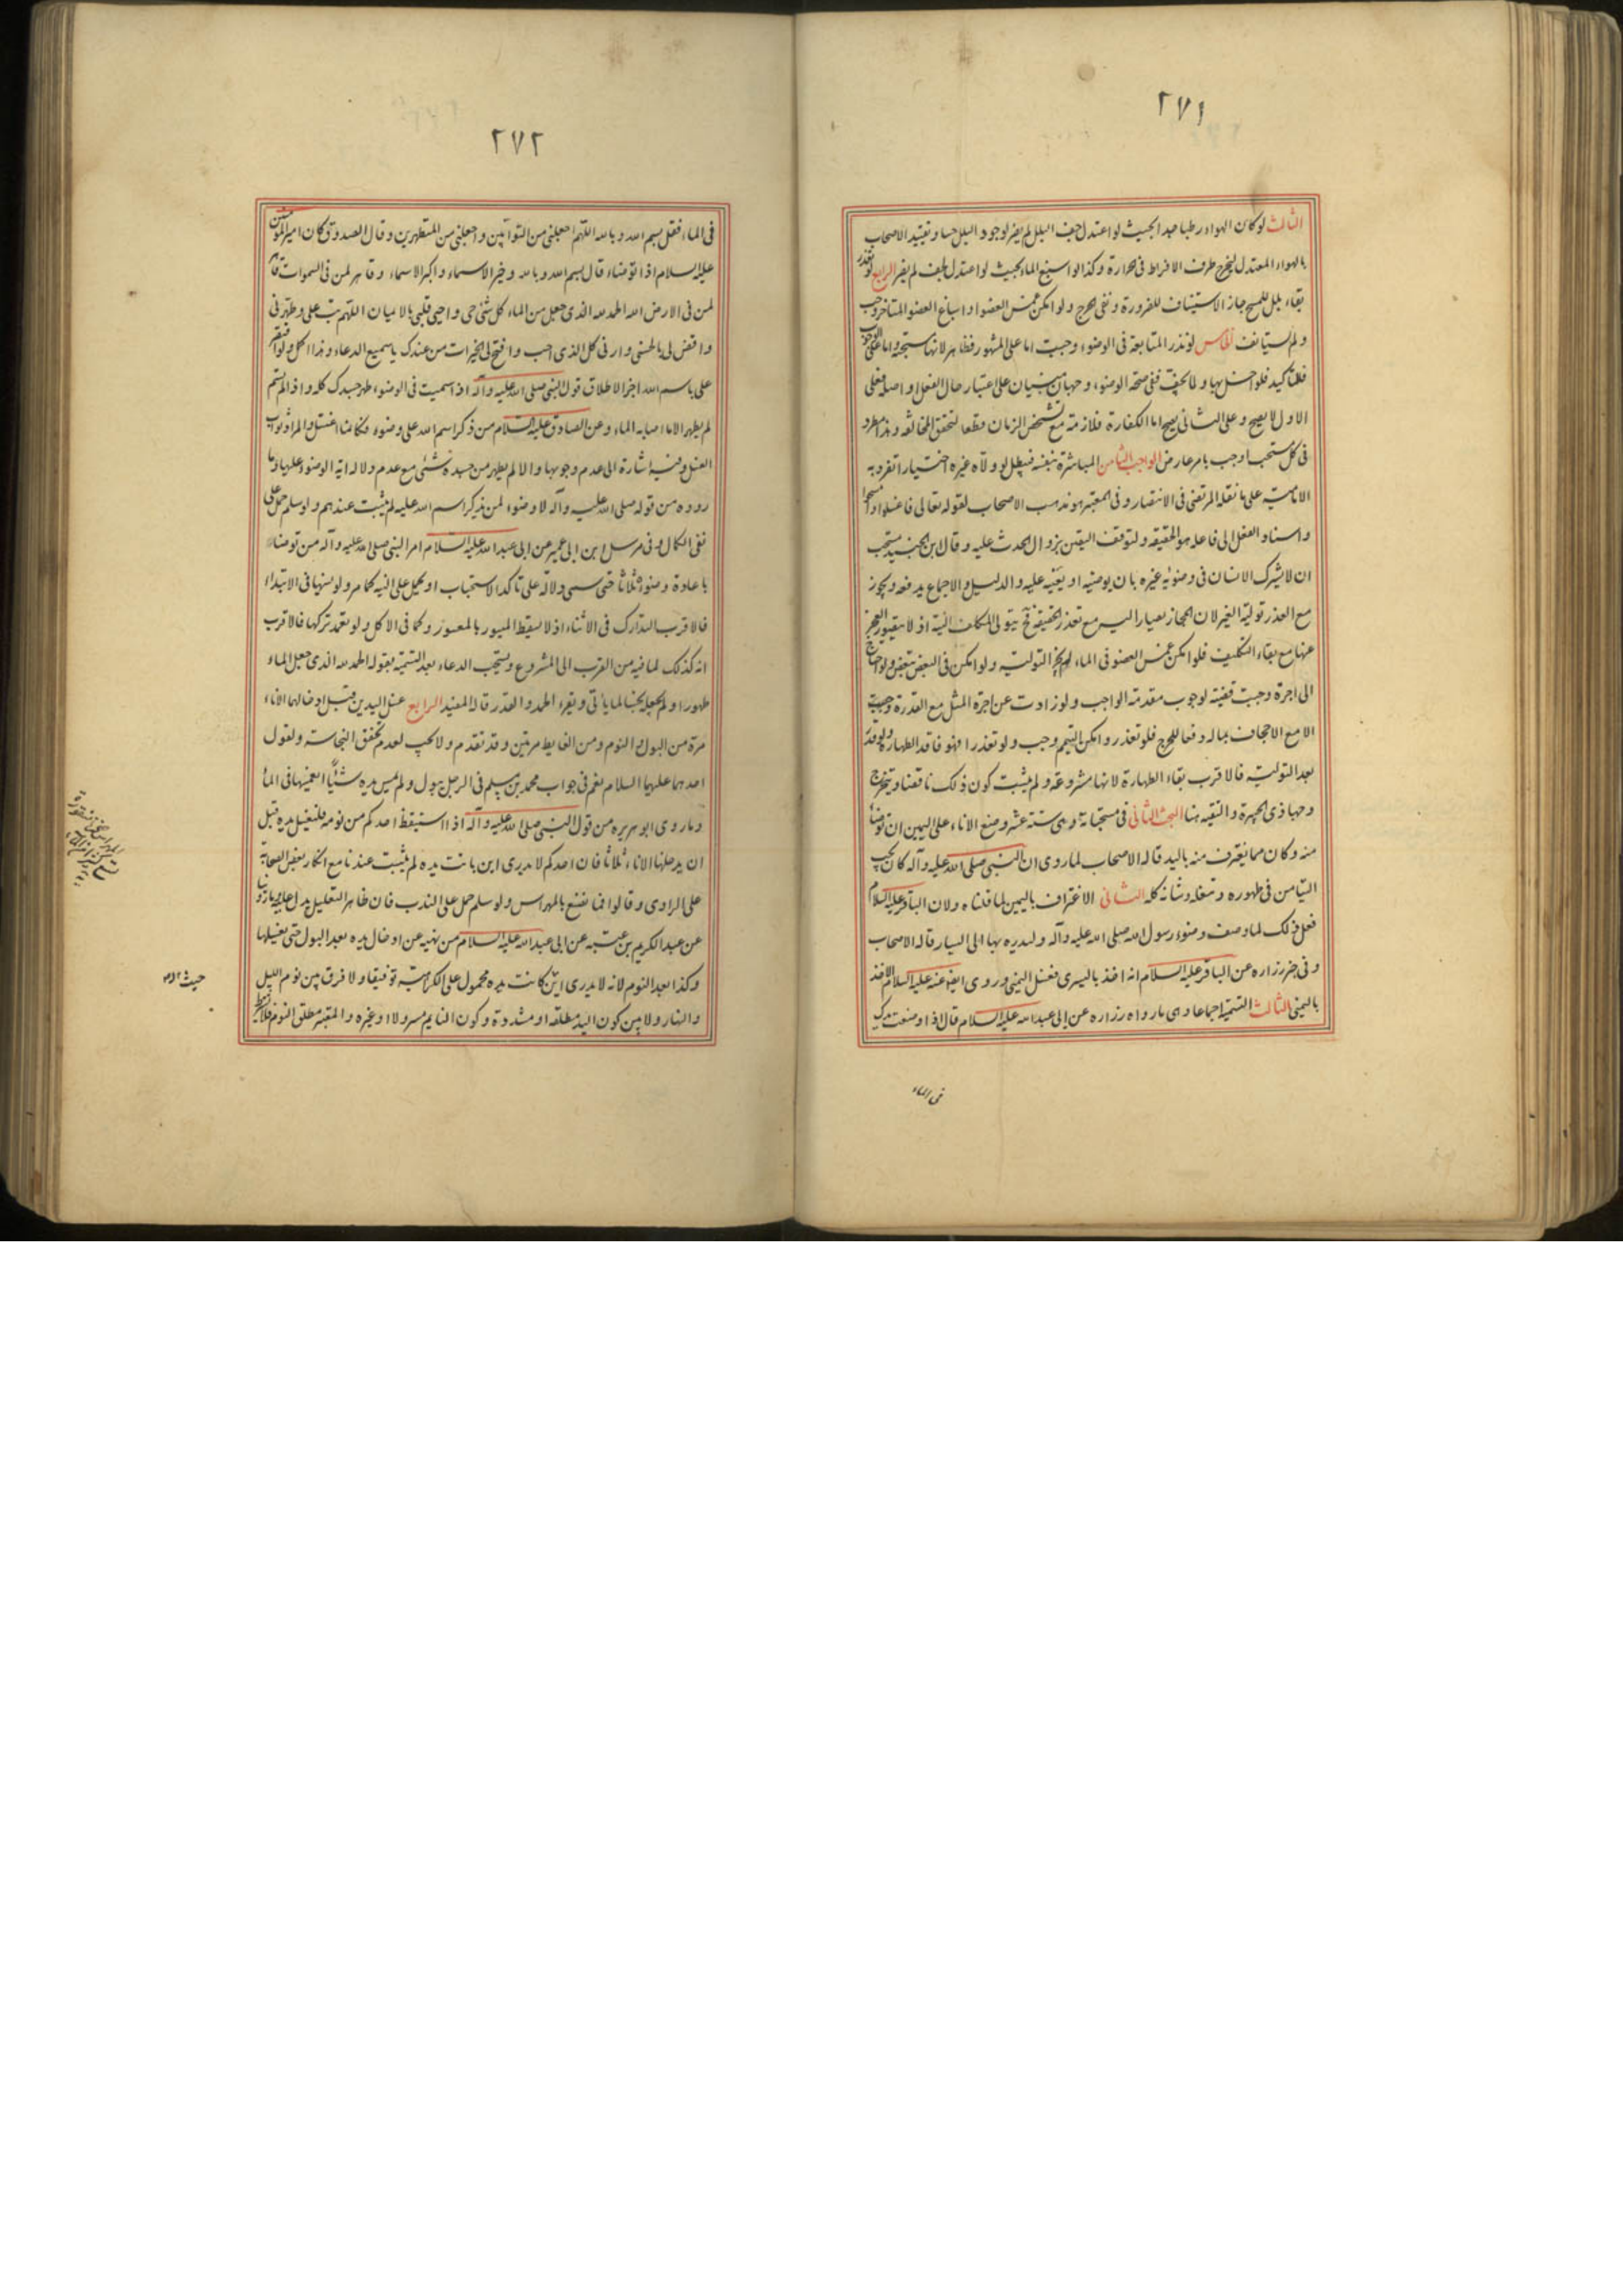 ٢٧١
الثالث لو كان الهواء رطبا جدا بحيث لو اعتدل جف البلل لم يضر لوجود البلل حسا وتقييد الاصحاب
بالهواء المعتدل ليخرج طرف الافراط فى الحرارة وكذا لو اسبغ الماء بحيث لو اعتدل لجف لم يضر الرابع لو تعذر
بقاء بلل للمسح جاز الاستيناف للضرورة ونفى الحرج ولو امكن غمس العضو او اسباغ العضو المتاخر وجب
ولم يستانف الخامس لو نذر المتابعة فى الوضوء وجبت اما على المشهور فظاهر لانها مستحبة واما على الوجوب
فللتاكيد فلو اخل بها ولما يجف ففى صحة الوضوء وجهان مبنيان على اعتبار حال الفعل او اصله فعلى
الاول لا يصح وعلى الثانى يصح اما الكفارة فلازمة مع تشخص الزمان قطعا لتحقق المخالفة وهذا مطرد
فى كل مستحب اوجب بامر عارض الواجب الثامن المباشرة بنفسه فيبطل لو ولاه غيره اختيارا تفرد به
الامامية على ما نقله المرتضى فى الانتصار وفى المعتبر هو مذهب الاصحاب لقوله تعالى فاغسلوا وامسحوا
واسناد الفعل الى فاعله هو الحقيقه ولتوقف اليقين بزوال الحدث عليه وقال ابن الجنيد يستحب
ان لا يشرك الانسان فى وضوئه غيره بان يوضيه او يعينه عليه والدليل والاجماع يدفعه ويجوز
مع العذر تولية الغير لان المجاز يصار اليه مع تعذر الحقيقة فح يتولى المكلف النية اذ لا يتصور العجز
عنها مع بقاء التكليف فلو امكن غمس العضو فى الماء لم يجز التولية ولو امكن فى البعض تبعض ولو احتاج
الى اجرة وجبت قضية لوجوب مقدمة الواجب ولو زادت عن اجرة المثل مع القدرة وجبت
الا مع الاجحاف بماله دفعا للحرج فلو تعذر وامكن التيمم وجب ولو تعذرا فهو فاقد الطهارة ولو قدر
بعد التولية فالاقرب بقاء الطهارة لانها مشروعة ولم يثبت كون ذلك ناقضا ويتخرج
وجها ذى الجبيرة والتقيه هنا البحث الثانى فى مستحباته وهى ستة عشر وضع الاناء على اليمين ان توضا
منه وكان مما يغترف منه باليد قاله الاصحاب لما روى ان النبى صلى الله عليه وآله كان يحب
التيامن فى طهوره وتنعله وشانه كله الثانى الاغتراف باليمين لما قلناه ولان الباقر عليه السلام
فعل ذلك لما وصف وضوء رسول الله صلى الله عليه وآله وليديره بها الى اليسار قاله الاصحاب
وفى خبر زراره عن الباقر عليه السلام انه اخذ باليسرى فغسل اليمنى وروى ايضا عنه عليه السلام الاخذ
باليمنى الثالث التسمية اجماعا وهى ما رواه زراره عن ابى عبد الله عليه السلام قال اذا وضعت يدك
فى الماء
٢٧٢
فى الماء فقل بسم الله وبالله اللهم اجعلنى من التوابين واجعلنى من المتطهرين وقال الصدوق كان امير المؤمنين
عليه السلام اذا توضاء قال بسم الله وبالله وخير الاسماء واكبر الاسماء وقاهر لمن فى السموات قاهر
لمن فى الارض الله الحمد لله الذى جعل من الماء كل شئ حى واحيى قلبى بالايمان اللهم تب على وطهرنى
واقض لى بالحسنى وارنى كل الذى احب وافتح لى الخيرات من عندك يا سميع الدعاء وهذا اكمل ولو اقتصر
على باسم الله اجزا لاطلاق قول النبى صلى الله عليه وآله اذا سميت فى الوضوء طهر جسدك كله واذا لم تسم
لم يطهر الا ما اصابه الماء وعن الصادق عليه السلام من ذكر اسم الله على وضوء فكانما اغتسل والمراد ثواب
الغسل وفيه اشارة الى عدم وجوبها والا لم يطهر من جسده شئ مع عدم دلالة آية الوضوء عليها وما
رووه من قوله صلى الله عليه وآله لا وضوء لمن لم يذكر اسم الله عليه لم يثبت عندهم ولو سلم حمل على
نفى الكمال وفى مرسل ابن ابى عمير عن ابى عبد الله عليه السلام امر النبى صلى الله عليه وآله من توضاء
باعادة وضوئه ثلاثا حتى سمى دلالة على تاكد الاستحباب او يحمل على النيه كما مر ولو نسيها فى الابتداء
فالاقرب التدارك فى الاثناء اذ لا يسقط الميسور بالمعسور وكما فى الاكل ولو تعمد تركها فالاقرب
انه كذلك لما فيه من القرب الى المشروع ويستحب الدعاء بعد التسمية بقوله الحمد لله الذى جعل الماء
طهورا ولم يجعله نجسا لما ياتى ويقراء الحمد والقدر قاله المفيد الرابع غسل اليدين قبل ادخالهما الاناء
مرة من البول والنوم ومن الغايط مرتين وقد تقدم ولا يجب لعدم تحقق النجاسة ولقول
احدهما عليهما السلام نعم فى جواب محمد بن مسلم فى الرجل يبول ولم يمس يده شيئا ايغمسها فى الماء
وما روى ابو هريره من قول النبى صلى الله عليه وآله اذا استيقظ احدكم من نومه فليغسل يده قبل
ان يدخلها الاناء ثلاثا فان احدكم لا يدرى اين باتت يده لم يثبت عندنا مع انكار بعض الصحابة
على الراوى وقالوا فما نصنع بالمهراس ولو سلم حمل على الندب فان ظاهر التعليل يدل عليه وما روينا
عن عبد الكريم بن عتبه عن ابى عبد الله عليه السلام من نهيه عن ادخال يده بعد البول حتى يغسلها
وكذا بعد النوم لانه لا يدرى اين كانت يده محمول على الكراهية توفيقا ولا فرق بين نوم الليل
والنهار ولا بين كون اليد مطلقة او مشدودة وكون النايم مسرولا او غيره والمعتبر مطلق النوم فلا يشترط